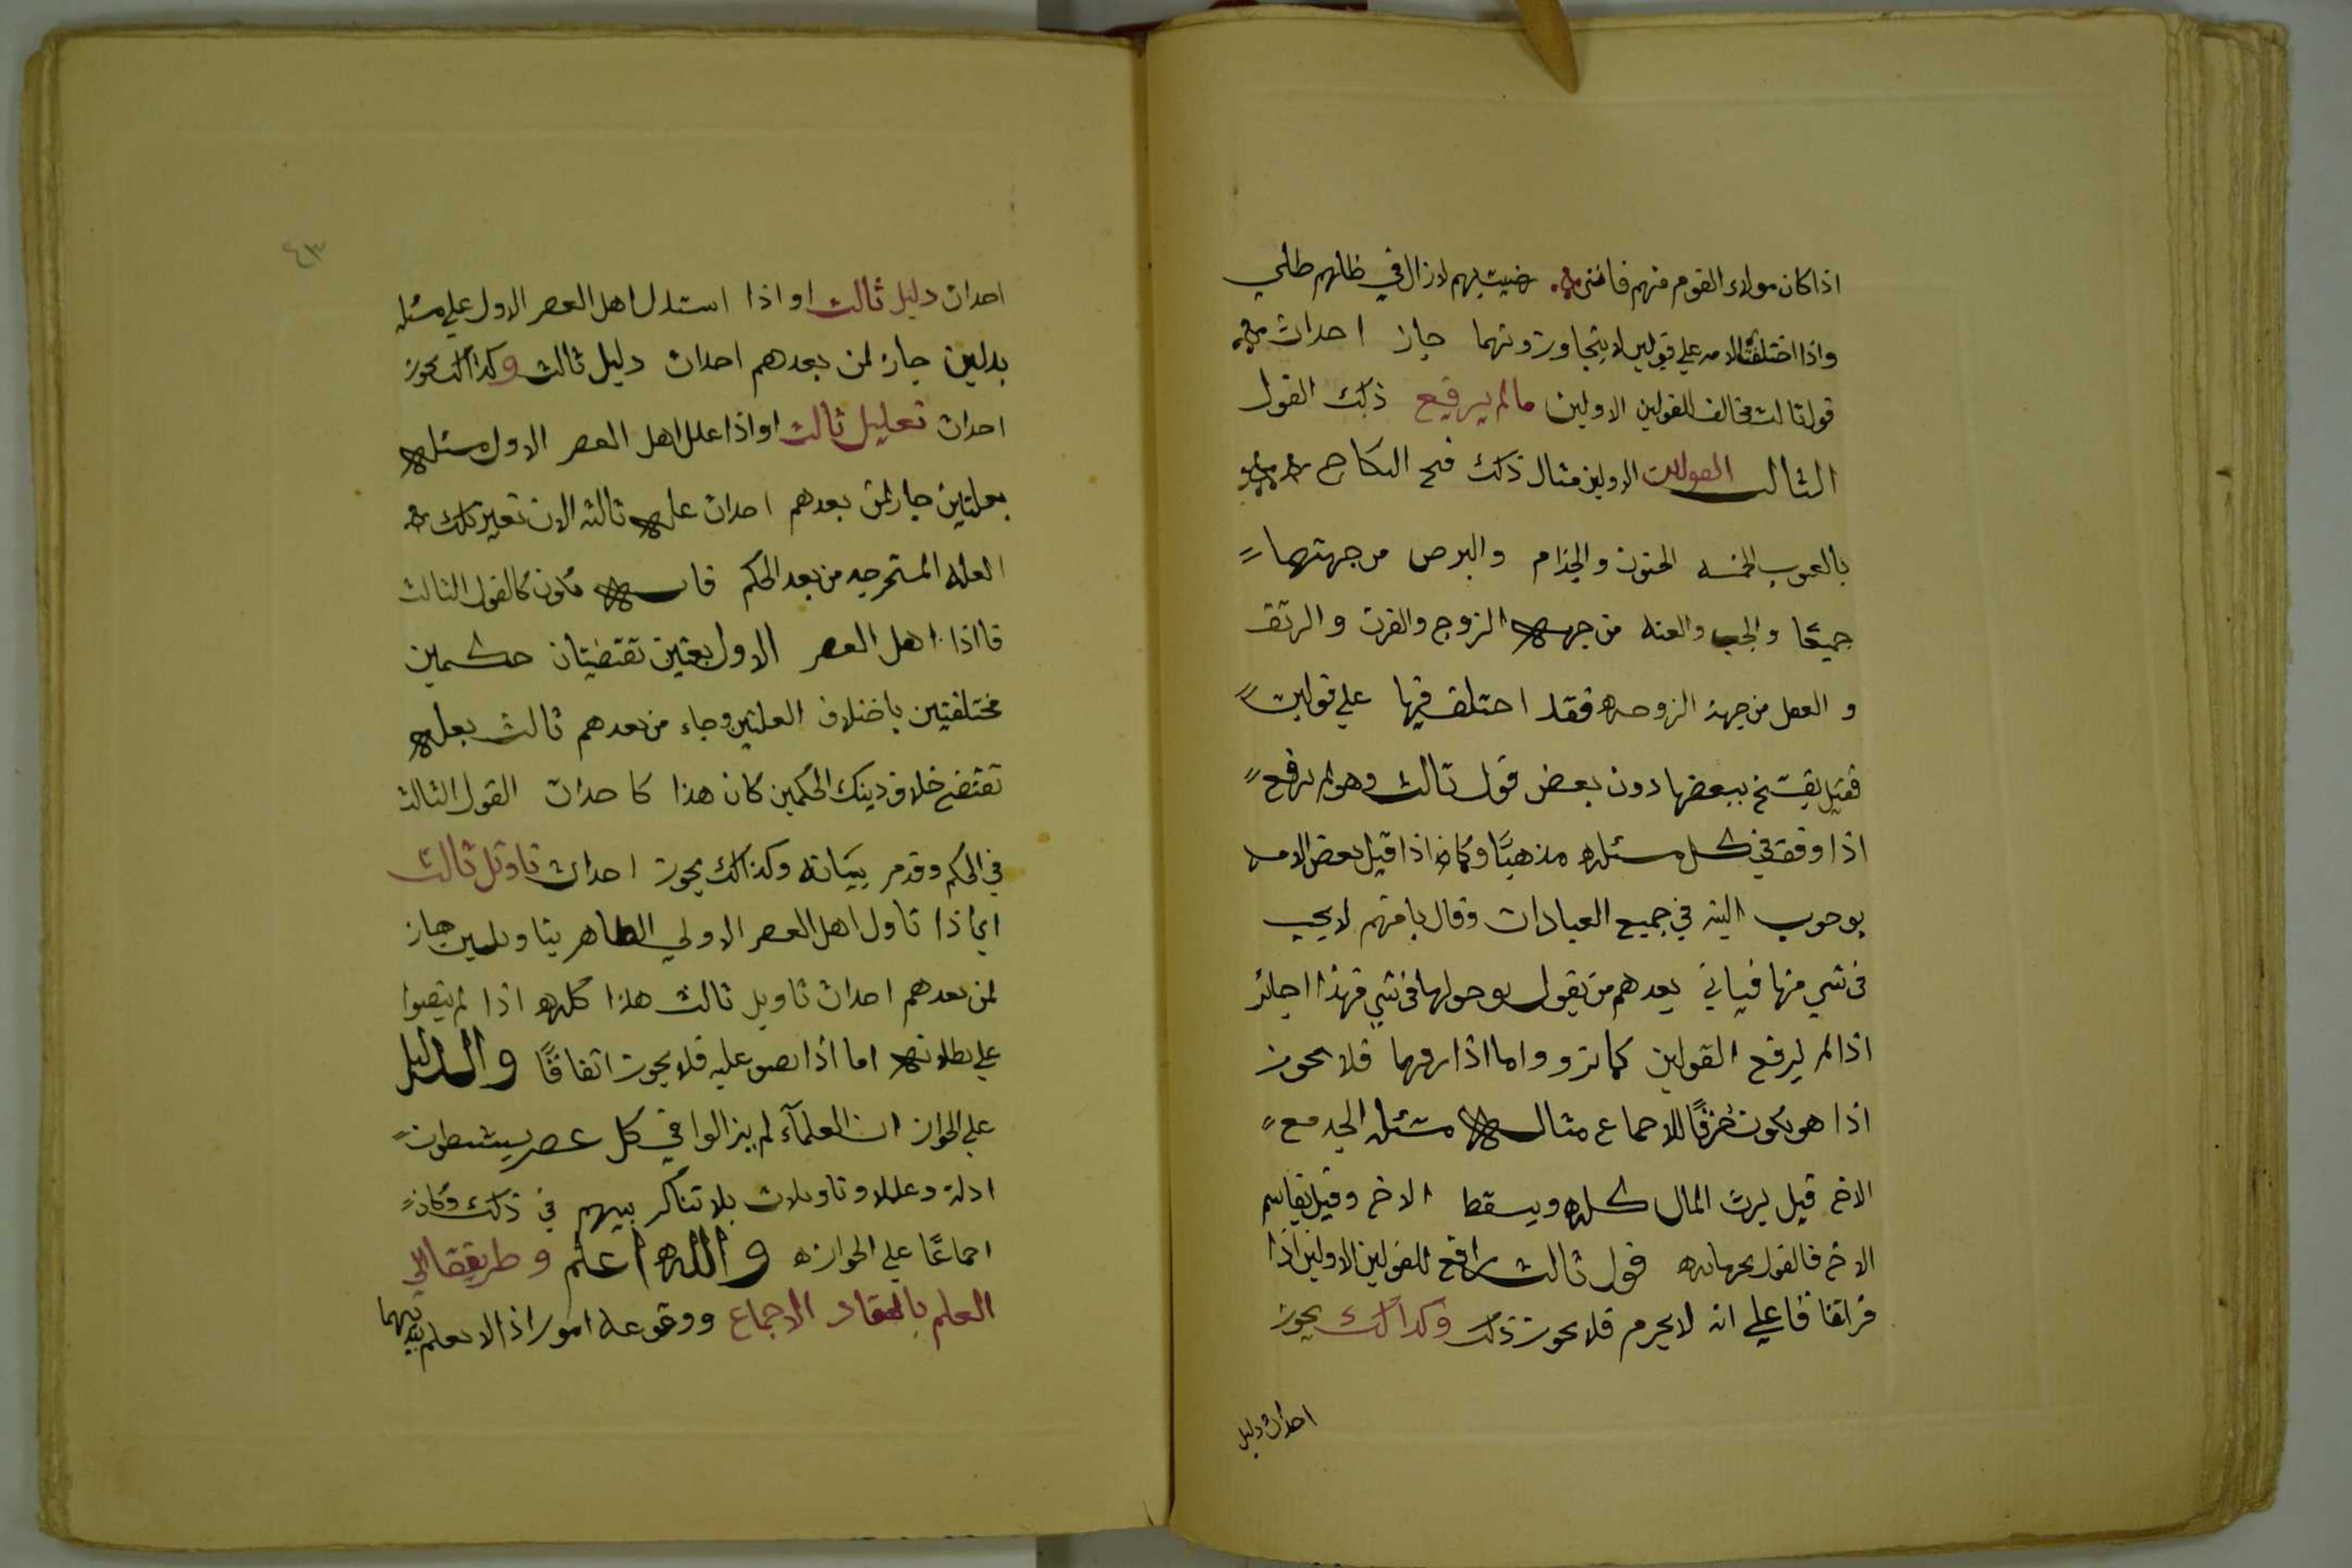 اذا كان مولاء القوم منهم فاغنى رضيت بهم لازال في ظلهم ظلي
واذا اختلفت الامه على قولين لا يتجاوزونهما جاز احداث
قول ثالث مخالف للقولين الاولين مالم يرفع ذلك القول
الثالث القولين الاولين مثال ذلك فسخ النكاح
بالعيوب الخمسه الجنون والجذام والبرص من جهتهما
جميعًا والجب والعنه من جهه الزوج والقرن والرتق
و العفل من جهة الزوجه فقد اختلف فيها على قولين
فقيل يفسخ ببعضها دون بعض قول ثالث وهو لم يرفع
اذا وفق في كل مسئله مذهبًا وكما اذا قيل بعض الامه
بوجوب النيه في جميع العبادات وقال باقيهم لا يجب
في شي منها فياتي بعدهم من يقول بوجوبها في شي فهذا جائز
اذا لم يرفع القولين كما ترو واما اذا رفعهما فلا يجوز
اذا هو يكون خرقًا للاجماع مثاله مسئله الجد مع
الاخ قيل يرث المال كله ويسقط الاخ وقيل يقاسم
الاخ فالقول بحرمانه قول ثالث رافع للقولين الاولين اذا
اتفاقا على انه لا يحرم فلا يجوز ذلك وكذالك يجوز
احداث دليل
٤٣
احداث دليل ثالث او اذا استدل اهل العصر الاول على مسئله
بدلين جاز لمن بعدهم احداث دليل ثالث وكذالك يجوز
احداث تعليل ثالث او اذا علل اهل العصر الاول مسئله
بعلتين جاز لمن بعدهم احداث عله ثالثه الان تغير تلك
العله المستخرجه من بعد الحكم فانه يكون كالقول الثالث
فااذا اهل العصر الاول بعتين تقتضيان حكمين
مختلفتين باختلاف العلتين وجاء من بعدهم ثالث بعله
تقتضي خلاف ذينك الحكمين كان هذا كاحداث القول الثالث
في الحكم وقد مر بيانه وكذالك يجوز احداث تاوئل ثالث
اي اذا تاول اهل العصر الاولي الظاهر بتاويلين جاز
لمن بعدهم احداث تاويل ثالث هذا كله اذا لم ينصوا
على بطلانه اما اذا نصو عليه فلا يجوز اتفاقًا والدليل
على الجواز ان العلمآء لم يزالوا في كل عصر يستنبطون
ادلة وعللا وتاويلات بلا تناكر بينهم في ذلك وكان
اجماعًا على الجوازه والله اعلم وطريقنا الي
العلم بانعقاد الاجماع ووقوعه امور اذ الا نعلم بينهما